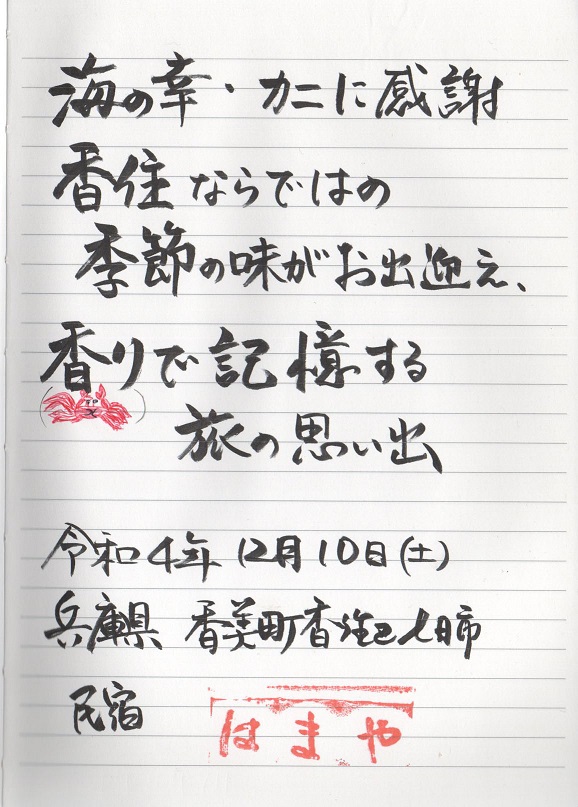 海の幸・カニに感謝
香住ならではの
季節の味がお出迎え、
香りで記憶する
旅の思い出
令和4年 12月10日(土)
兵庫県 香美町香住区七日市
民宿 はまや